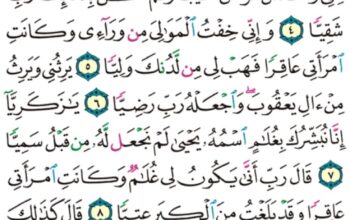 شَقِيًّا ٤ وَإِنِّي خِفْتُ ٱلْمَوَٰلِيَ مِن وَرَآءِي وَكَانَتِ
ٱمْرَأَتِي عَاقِرًا فَهَبْ لِي مِن لَّدُنكَ وَلِيًّا ٥ يَرِثُنِي وَيَرِثُ
مِنْ ءَالِ يَعْقُوبَۖ وَٱجْعَلْهُ رَبِّ رَضِيًّا ٦ يَٰزَكَرِيَّآ
إِنَّا نُبَشِّرُكَ بِغُلَٰمٍ ٱسْمُهُۥ يَحْيَىٰ لَمْ نَجْعَل لَّهُۥ مِن قَبْلُ سَمِيًّا
٧ قَالَ رَبِّ أَنَّىٰ يَكُونُ لِي غُلَٰمٌ وَكَانَتِ ٱمْرَأَتِي
عَاقِرًا وَقَدْ بَلَغْتُ مِنَ ٱلْكِبَرِ عِتِيًّا ٨ قَالَ كَذَٰلِكَ